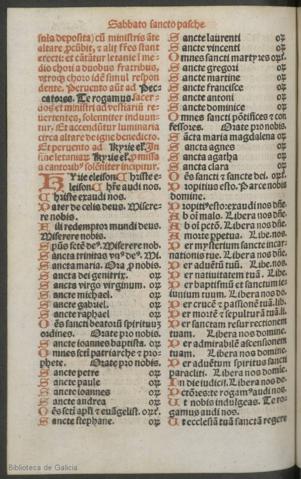 Sabbato sancto pasche
sula deposita) cū ministris āte
altare ꝓcūbit, ⁊ alij frēs stant
erecti: et cātātur letanie i me-
dio chori a duobus fratribus,
vtroqꝫ choro idē simul respon
dente. Peruento aūt ad Pec-
catores. Te rogamus sacer-
dos et ministri ad vestiariū re-
uertentes, solenniter induun-
tur. Et accendūtur luminaria
circa altare de igne benedicto.
Et peruento ad Kyrie el'. In
fine letaniaꝝ Kyrie el'. ꝓ missa
a cantorib' solēniter incipitur.
Kyrie eleison Christe e-
leison Chr̄e audi nos.
Christe exaudi nos.
Pater de celis deus. Misere-
re nobis.
Fili redemptor mundi deus
Miserere nobis.
Spūs sctē de'. Miserere nob.
Sancta trinitas vn' de'. Mi.
Sancta maria. Ora ꝓ nobis.
Sancta dei genitrix. oꝝ
Sancta virgo virginum. oꝝ
Sancte michael. oꝝ
Sancte gabriel. oꝝ
Sancte raphael oꝝ
Oēs sancti beatoꝝ spirituuꝫ
ordines. Orate pro nobis.
Sancte ioannes baptista. oꝝ
Omnes scti patriarche ⁊ pro-
phete. Orate pro nobis.
Sancte petre oꝝ
Sancte paule oꝝ
Sancte ioannes oꝝ
Sancte andrea oꝝ
Oēs scti apli ⁊ euāgelist. orꝝ.
Sancte stephane. oꝝ
Sancte laurenti oꝝ
Sancte vincenti oꝝ
Omnes sancti martyres orꝝ.
Sancte gregori oꝝ
Sancte martine oꝝ
Sancte francisce oꝝ
Sancte antoni oꝝ
Sancte dominice oꝝ
Omnes sancti pōtifices ⁊ con
fessores. Orate pro nobis
Sancta maria magdalena oꝝ
Sancta agnes oꝝ
Sancta agatha oꝝ
Sancta clara oꝝ
Oēs sancti ⁊ sancte dei. orꝝ.
Propitius esto. Parce nobis
domine.
Propiti' esto: exaudi nos dn̄e
Ab oī malo. Libera nos dn̄e.
Ab oī pctō. Libera nos dn̄e.
A morte ꝑpetua. Libe. nos.
Per mysterium sancte incar-
nationis tue. Libera nos dn̄e.
Per aduētū tuū. Libe. nos.
Per natiuitatem tuā. Libe.
Per baptismū et sanctum ie-
iunium tuum. Libera nos dn̄e
Per crucē ⁊ passionē tuā. lib.
Per mortē ⁊ sepulturā tuā. li.
Per sanctam resurrectionem
tuam. Libera nos domine.
Per admirabilē ascensionem
tuam. Libera nos domine.
Per aduētum spiritus sancti
paracliti. Libera nos domine.
In die iudicii. Libera nos do.
Pctōres: te rogam' audi nos.
Ut nobis indulgeas. Te ro-
gamus audi nos.
Ut ecclesiā tuā sanctā regere
Biblioteca de Galicia